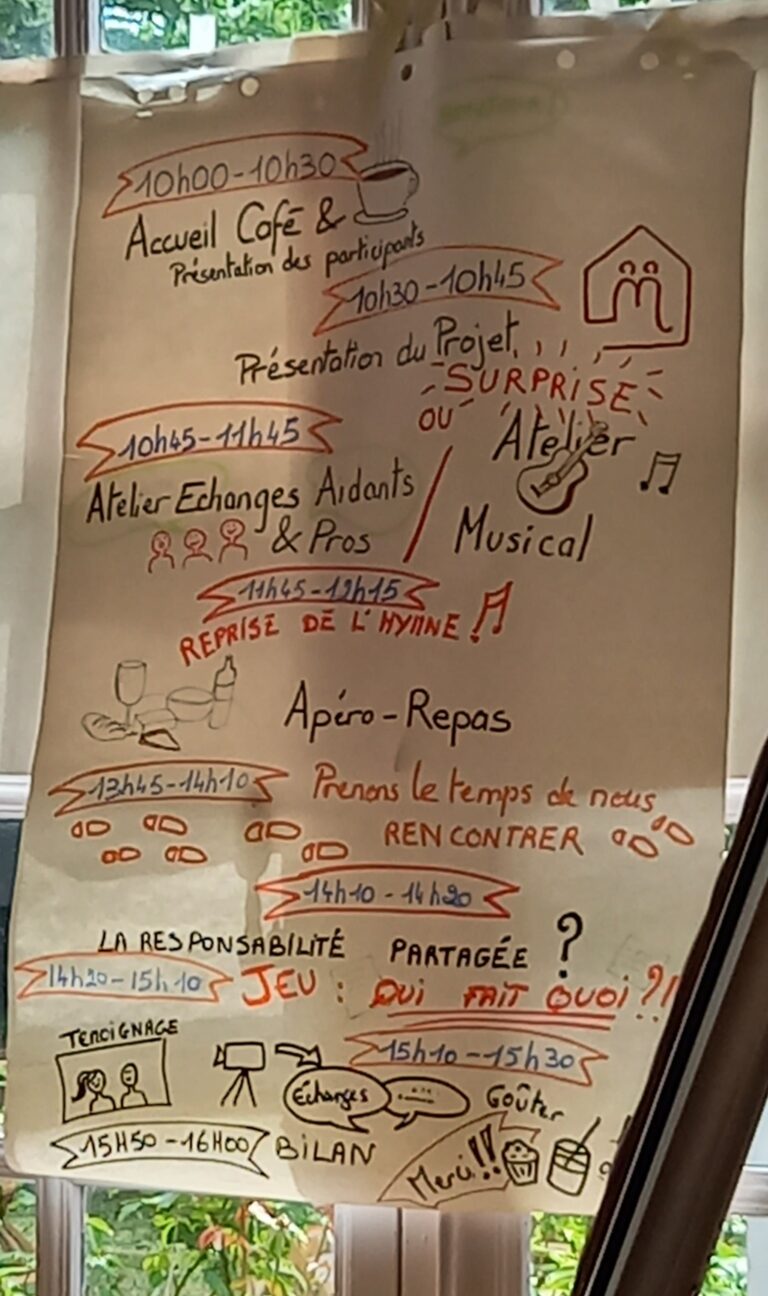 10h00-10h30
Accueil Café &
Présentation des participants
10h30-10h45
Présentation du Projet
SURPRISE
10h45-11h45
OU
Atelier Echanges Aidants
& Pros
/
Atelier
Musical
11h45-12h15
REPRISE DE L'HYMNE
Apéro-Repas
13h45-14h10
Prenons le temps de nous
RENCONTRER
14h10-14h20
LA RESPONSABILITÉ PARTAGÉE ?
14h20-15h10
JEU : QUI FAIT QUOI ?!
TEMOIGNAGE
15h10-15h30
Echanges
...
Goûter
15H50-16H00
BILAN
Merci!!